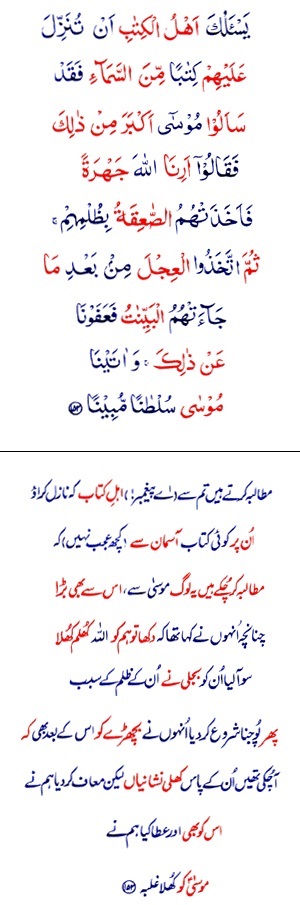 يَسْـَٔلُكَ اَهْلُ الْكِتٰبِ اَنْ تُنَزِّلَ
عَلَيْهِمْ كِتٰبًا مِّنَ السَّمَآءِ فَقَدْ
سَاَلُوْا مُوْسٰۤى اَكْبَرَ مِنْ ذٰلِكَ
فَقَالُوْۤا اَرِنَا اللّٰهَ جَهْرَةً
فَاَخَذَتْهُمُ الصّٰعِقَةُ بِظُلْمِهِمْ ۚ
ثُمَّ اتَّخَذُوا الْعِجْلَ مِنْۢ بَعْدِ مَا
جَآءَتْهُمُ الْبَيِّنٰتُ فَعَفَوْنَا
عَنْ ذٰلِكَ ۚ وَ اٰتَيْنَا
مُوْسٰى سُلْطٰنًا مُّبِيْنًا ﴿۱۵۳﴾
مطالبہ کرتے ہیں تم سے (اے پیغمبر!) اہلِ کتاب کہ نازل کراؤ
اُن پر کوئی کتاب آسمان سے (کچھ عجب نہیں) کہ
مطالبہ کرچُکے ہیں یہ لوگ موسیٰ سے، اس سے بھی بڑا
چنانچہ اُنہوں نے کہا تھا کہ دکھا تو ہم کو اللہ کُھلم کُھلا
سو آلیا اُن کو بجلی نے اُن کے ظلم کے سبب
پھر پُوجنا شروع کردیا اُنہوں نے بچھڑے کو اس کے بعد بھی کہ
آچکی تھیں اُن کے پاس کھلی نشانیاں لیکن معاف کردیا ہم نے
اس کو بھی اور عطا کیا ہم نے
موسیٰؑ کو کُھلا غلبہ ﴿۱۵۳﴾